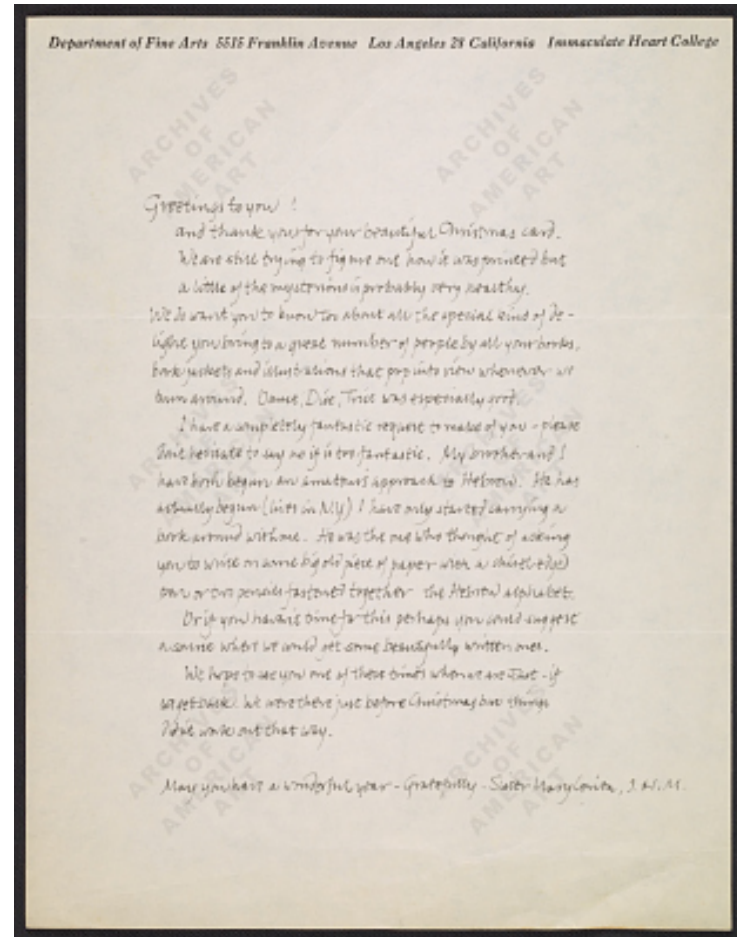 Department of Fine Arts 5515 Franklin Avenue Los Angeles 28 California Immaculate Heart College
ARCHIVES OF AMERICAN ART
ARCHIVES OF AMERICAN ART
Greetings to you !
and thank you for your beautiful Christmas card.
We are still trying to figure out how it was printed but
a little of the mysterious is probably very healthy.
We do want you to know too about all the special kind of de-
light you bring to a great number of people by all your books,
book jackets and illustrations that pop into view whenever we
turn around. Once, Dice, Trice was especially good.
I have a completely fantastic request to make of you - please
don't hesitate to say no if it is too fantastic. My brother and I
have both begun an amateur's approach to Hebrew. He has
actually begun (lives in NY) I have only started carrying a
book around with me. He was the one who thought of asking
you to write on some big old piece of paper with a chisel edged
pen or two pencils fastened together the Hebrew alphabet.
Or if you haven't time for this perhaps you could suggest
a source where we could get some beautifully written ones.
We hope to see you one of these times when we are East - if
we get back. We were there just before Christmas but things
didn't work out that way.
May you have a wonderful year - Gratefully - Sister Mary Corita, I.H.M.
ARCHIVES OF AMERICAN ART
ARCHIVES OF AMERICAN ART
ARCHIVES OF AMERICAN ART
ARCHIVES OF AMERICAN ART